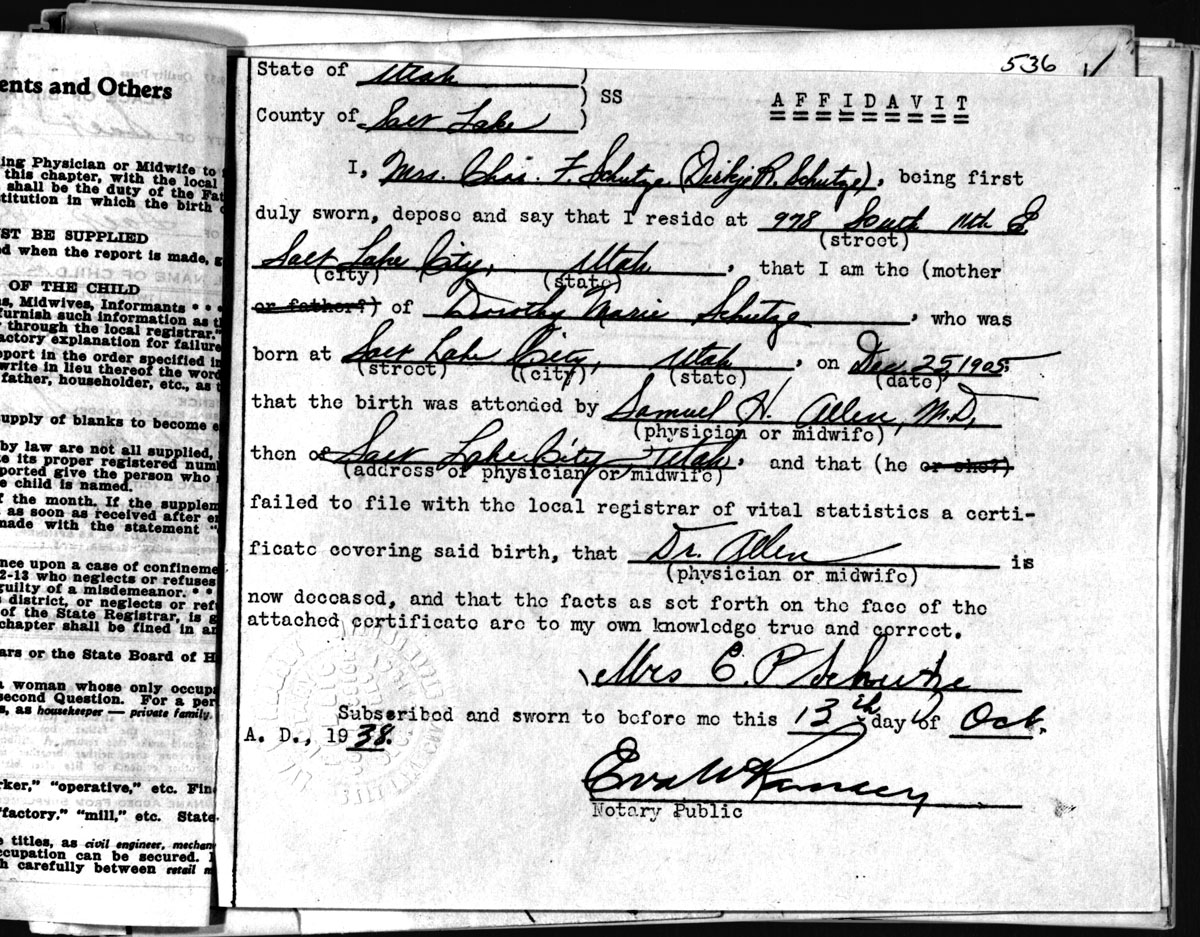 ents and Others
ing Physician or Midwife to
this chapter, with the local
shall be the duty of the Fat
stitution in which the birth
ST BE SUPPLIED
d when the report is made, g
OF THE CHILD
s, Midwives, Informants • • •
furnish such information as t
through the local registrar."
actory explanation for failure
port in the order specified in
write in lieu thereof the word
father, householder, etc., as t
upply of blanks to become e
by law are not all supplied,
te its proper registered num
ported give the person who
e child is named.
f the month. If the supplem
as soon as received after
made with the statement "
nce upon a case of confineme
2-13 who neglects or refuses
guilty of a misdemeanor. • •
district, or neglects or ref
of the State Registrar, is g
chapter shall be fined in an
ars or the State Board of H
a woman whose only occup
second Question. For a per
s, as housekeeper — private family
rker," "operative," etc. Fin
"factory." "mill," etc. State
e titles, as civil engineer, mechan
ccupation can be secured.
h carefully between retail m
536
State of Utah )
) SS
AFFIDAVIT
County of Salt Lake )
I, Mrs. Chas. F. Schutze (Dirkje R. Schutze), being first
duly sworn, depose and say that I reside at 978 South 11th E
(street)
Salt Lake City, Utah, that I am the (mother
(city) (state)
or father?) of Dorothy Marie Schutze, who was
born at Salt Lake City, Utah, on Dec. 25, 1905.
(street) (city) (state) (date)
that the birth was attended by Samuel H. Allen, M.D.
(physician or midwife)
then of Salt Lake City Utah, and that (he or she?)
(address of physician or midwife)
failed to file with the local registrar of vital statistics a certi-
ficate covering said birth, that Dr. Allen is
(physician or midwife)
now deceased, and that the facts as set forth on the face of the
attached certificate are to my own knowledge true and correct.
Mrs C. F Schutze
Subscribed and sworn to before me this 13th day of Oct.
A. D., 1938.
Eva W Ramsey
Notary Public